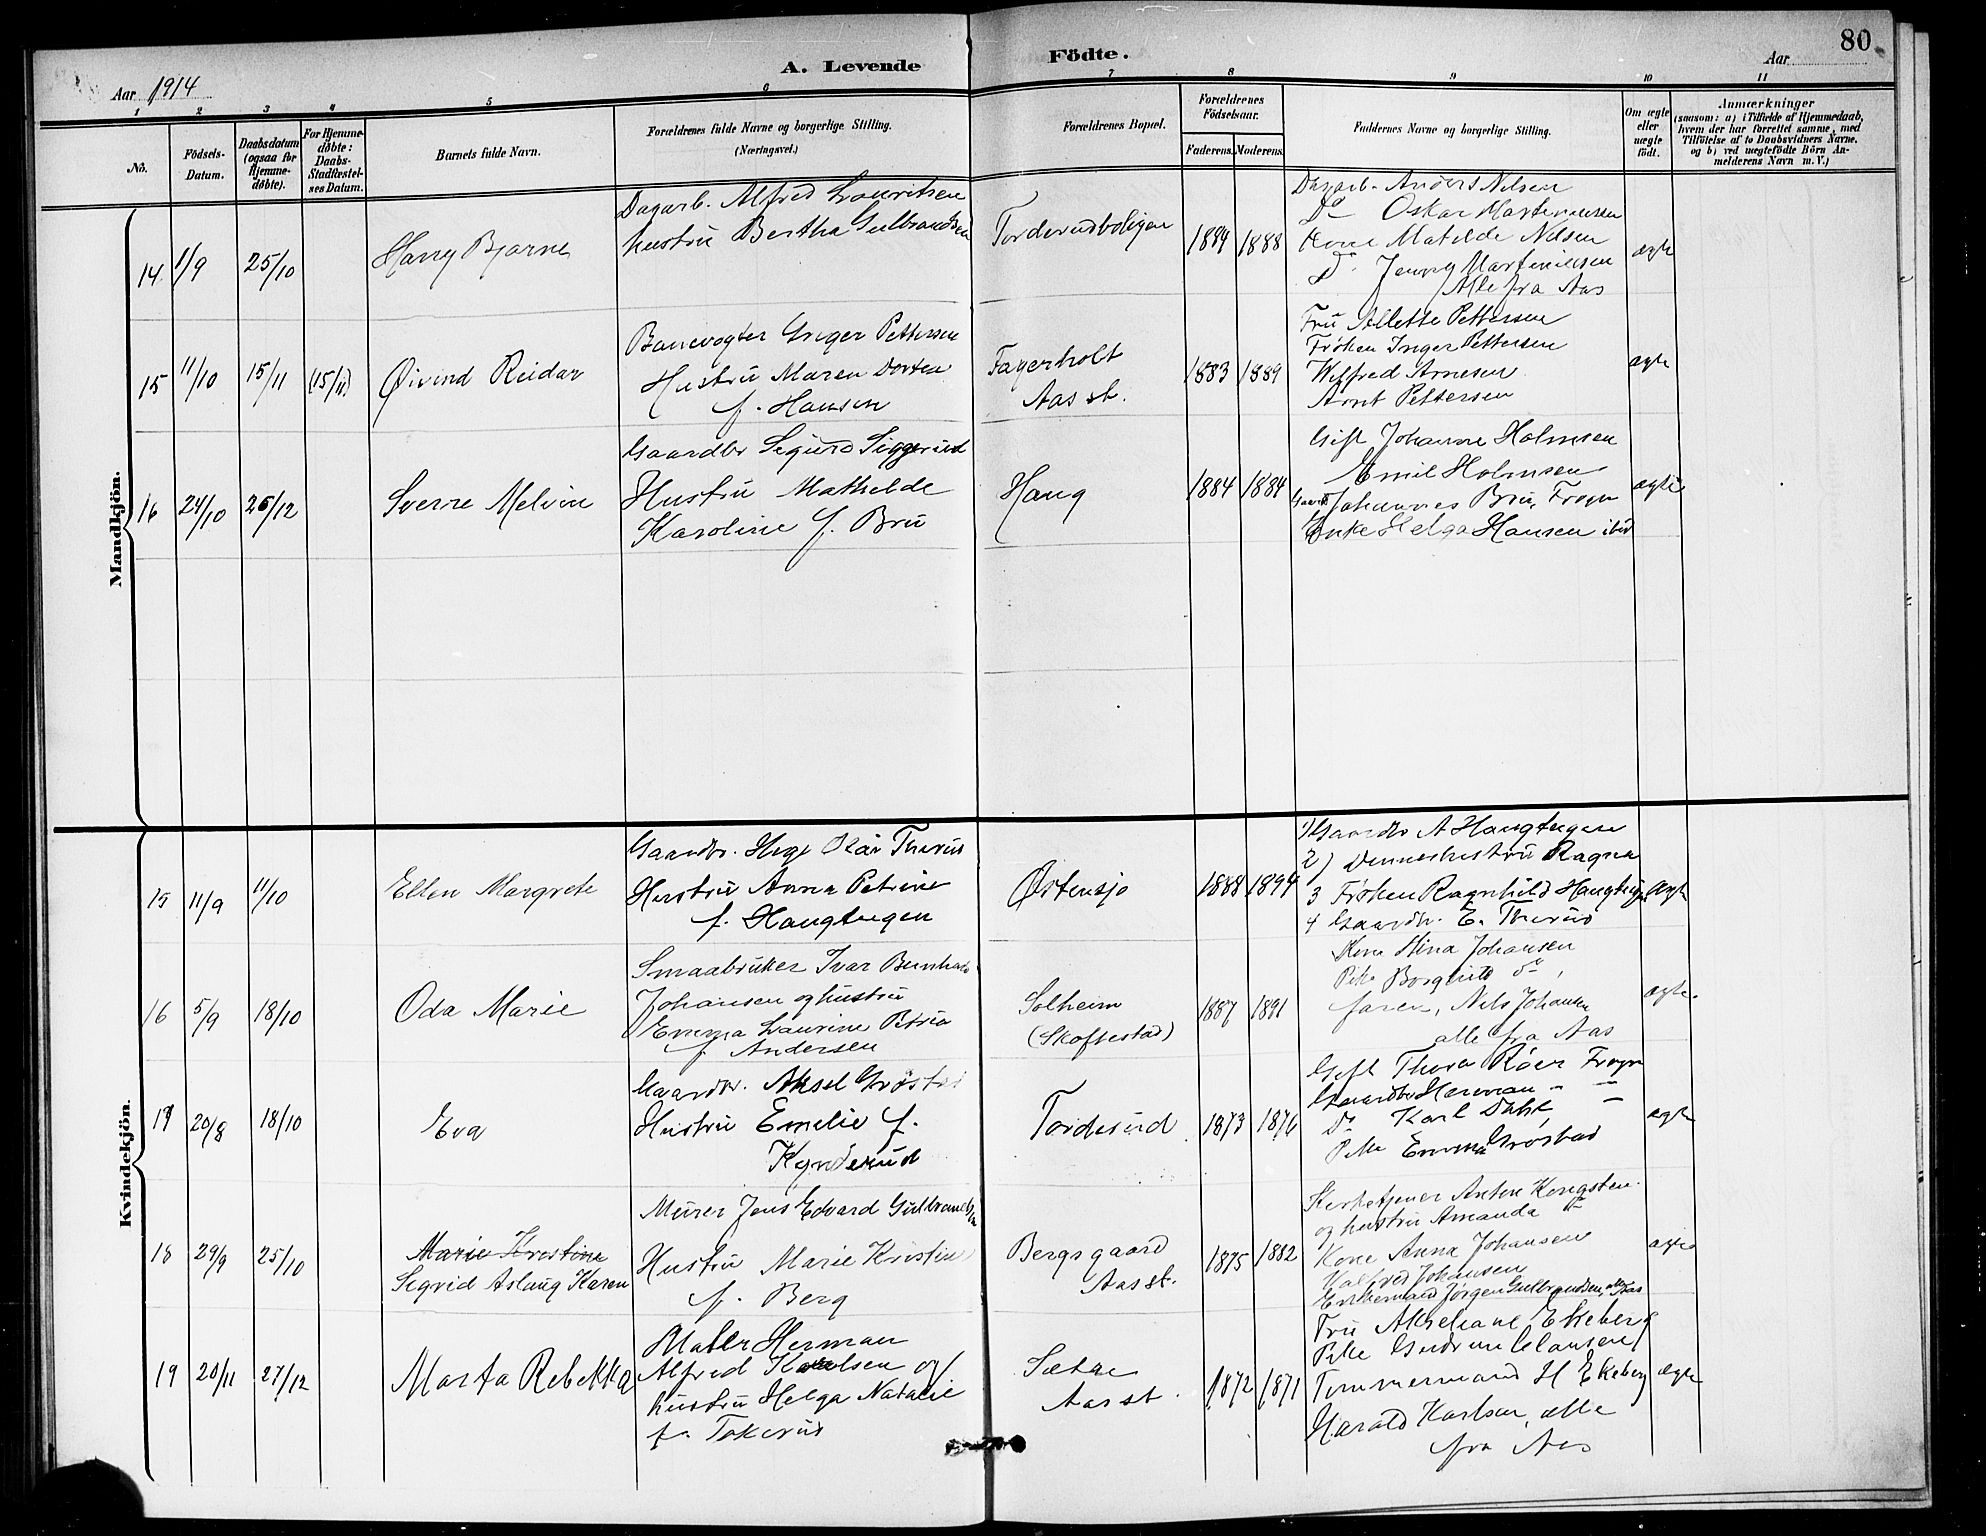 80
A. Levende Födte.
Aar 1914
Aar
1 2 3 4 5 6 7 8 9 10 11
No.
Födsels-Datum.
Daabsdatum (ogsaa for Hjemme-døbte).
For Hjemme-døbte: Daabs-Stadfæstel-ses Datum.
Barnets fulde Navn.
Forældrenes fulde Navne og borgerlige Stilling.
(Næringsvei.)
Forældrenes Bopæl.
Forældrenes Födselsaar.
Faderens. Moderens.
Faddernes Navne og borgerlige Stilling.
Om ægte eller uægte födt.
Anmærkninger
(saasom: a) i Tilfælde af Hjemmedaab,
hvem der har forrettet samme, med
Tilföielse af to Daabsvidners Navne.
og b) ved uægtefödte Börn An-
melderens Navn m. V.)
Mandkjön.
14 1/9 25/10 Harry Bjarne
Dagarb. Alfred Lauritsen
hustru Bertha Gulbrandsen
Torderudboligen
1884 1888
Dagarb. Anders Nilsen
Do Oskar Martiniussen
Kone Matilde Nilsen
Do Jenny Martiniussen
Alle fra Aas
ægte
15 11/10 15/11 (15/11) Øivind Reidar
Banevogter Inger Pettersen
Hustru Maren Dorten
f. Hansen
Fagerholt
Aas st.
1883 1889
Fru Allette Pettersen
Frøken Inger Pettersen
Wilfred Arnesen
Arnt Pettersen
ægte
16 24/10 26/12 Sverre Melvin
Gaardbr Sigurd Siggerud
Hustru Mathilde
Karoline f. Bru
Haug
1884 1884
Gift Johanne Holmsen
Emil Holmsen
Gaardb Johannes Bru, Frogn
Enke Helga Hansen ibid
ægte
Kvindekjön.
15 11/9 11/10 Ellen Margrete
Gaardbr. Hage Olav Therud
Hustru Anna Petrine
f. Haugtegen
Østensjø
1888 1894
1) Gaardbr A Haugtegen
2) Dennes hustru Ragna
3 Frøken Ragnhild Haugtegen
4 Gaardbr. E. Therud
ægte
16 5/9 18/10 Oda Marie
Smaabruker Ivar Bernhard
Johansen og hustru
Emma Laurine Petrea
f Andersen
Solheim
(Skoftestad)
1887 1891
Kone Stina Johansen
Pike Borghild do,
faren, Nils Johansen
alle fra Aas
ægte.
17 20/8 18/10 Eva
Gaardbr. Aksel Grøstad
Hustru Emelie f.
Kynderud
Torderud
1873 1876
Gift Thora Røer Frogn
Gaardbr Herman - -
Do Karl Dahl, -
Pike Emma Grøstad
ægte
18 29/9 25/10 Marie Kristine
Sigrid Aslaug Karen
Murer Jens Edvard Gulbrandsen
Hustru Marie Kristine
f. Berg
Bergsgaard
Aas st.
1875 1882
Kirketjener Anton Kongsten
og hustru Amanda do
Kone Anna Johansen
Halfred Johansen
Enkemand Jørgen Gulbrandsen, alle Aas
ægte
19 20/11 27/12 Marta Rebekka
Maler Herman
Alfred Karlsen og
hustru Helga Natalie
f. Tokerud
Sætre
Aas st.
1872 1871
Fru Akseliane Ekeberg
Pike Gudrun Clausen
Tømmermand H Ekeberg
Harald Karlsen, alle
fra Aas
ægte